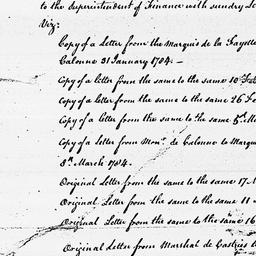 to the Superintendent of Finance with sundry
Viz:
Copy of a Letter from the Marquis de la Fayette
Calonne 31 January 1784. —
Copy of a letter from the same to the same 10
Copy of a Letter from the same to the same 26
Copy of a Letter from the same to the same 5th
Copy of a Letter from Monr. de Calonne to Marquis
8th March 1784.
Original Letter from the same to the same 17
Original Letter from the same to the same 11
Original Letter from the same to the same 16
Original Letter from Marshal de Castries